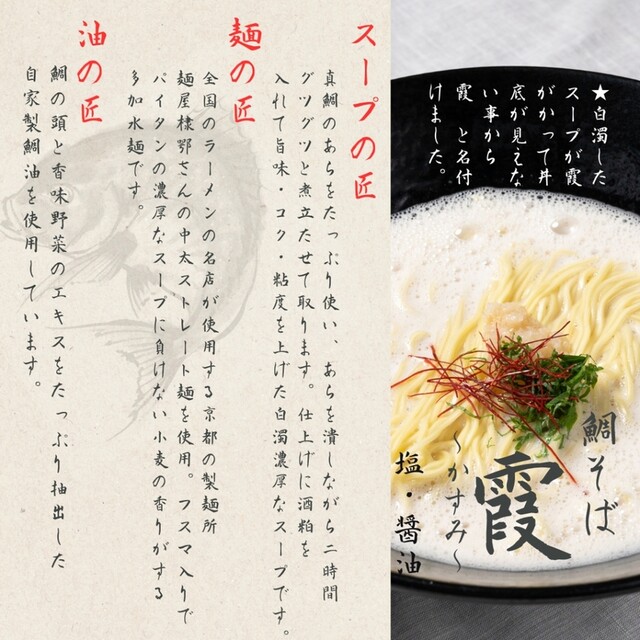 ★白濁した
スープが霞
がかって丼
底が見えな
い事から
霞　と名付
けました。
鯛そば
霞
～かすみ～
塩・醤油
スープの匠
真鯛のあらをたっぷり使い、あらを潰しながら二時間
グツグツと煮立たせて取ります。仕上げに酒粕を
入れて旨味・コク・粘度を上げた白濁濃厚なスープです。
麺の匠
全国のラーメンの名店が使用する京都の製麺所
麺屋棣鄂さんの中太ストレート麺を使用。フスマ入りで
パイタンの濃厚なスープに負けない小麦の香りがする
多加水麺です。
油の匠
鯛の頭と香味野菜のエキスをたっぷり抽出した
自家製鯛油を使用しています。